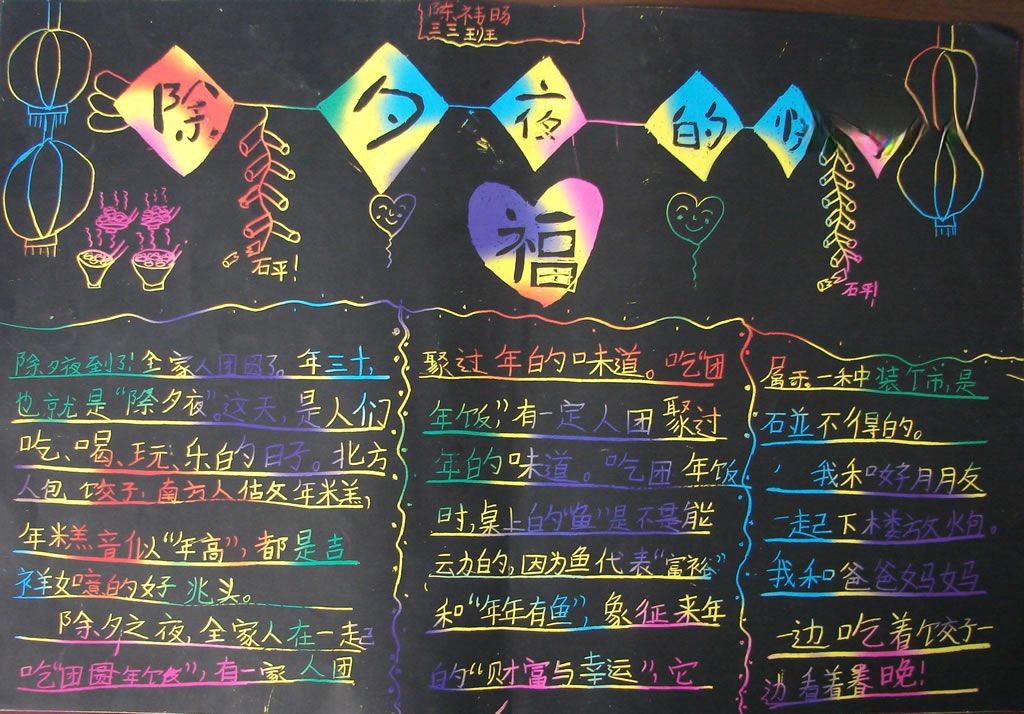 陈祎旸
三三班
除夕夜的
福
砰!
砰!
除夕夜到了!全家人团圆了。年三十,
也就是"除夕夜"。这天,是人们
吃、喝、玩、乐的日子。北方
人包饺子,南方人做年糕,
年糕音似"年高",都是吉
祥如意的好兆头。
除夕之夜,全家人在一起
吃"团圆年饭",有一家人团
聚过年的味道。吃"团
年饭",有一定人团聚过
年的味道。吃团年饭
时,桌上的"鱼"是不是能
动的,因为鱼代表"富裕"
和"年年有鱼",象征来年
的"财富与幸运",它
属于一种装饰,是
碰不得的。
我和好朋友
一起下楼放炮。
我和爸爸妈妈
一边吃着饺子一
边看着春晚!